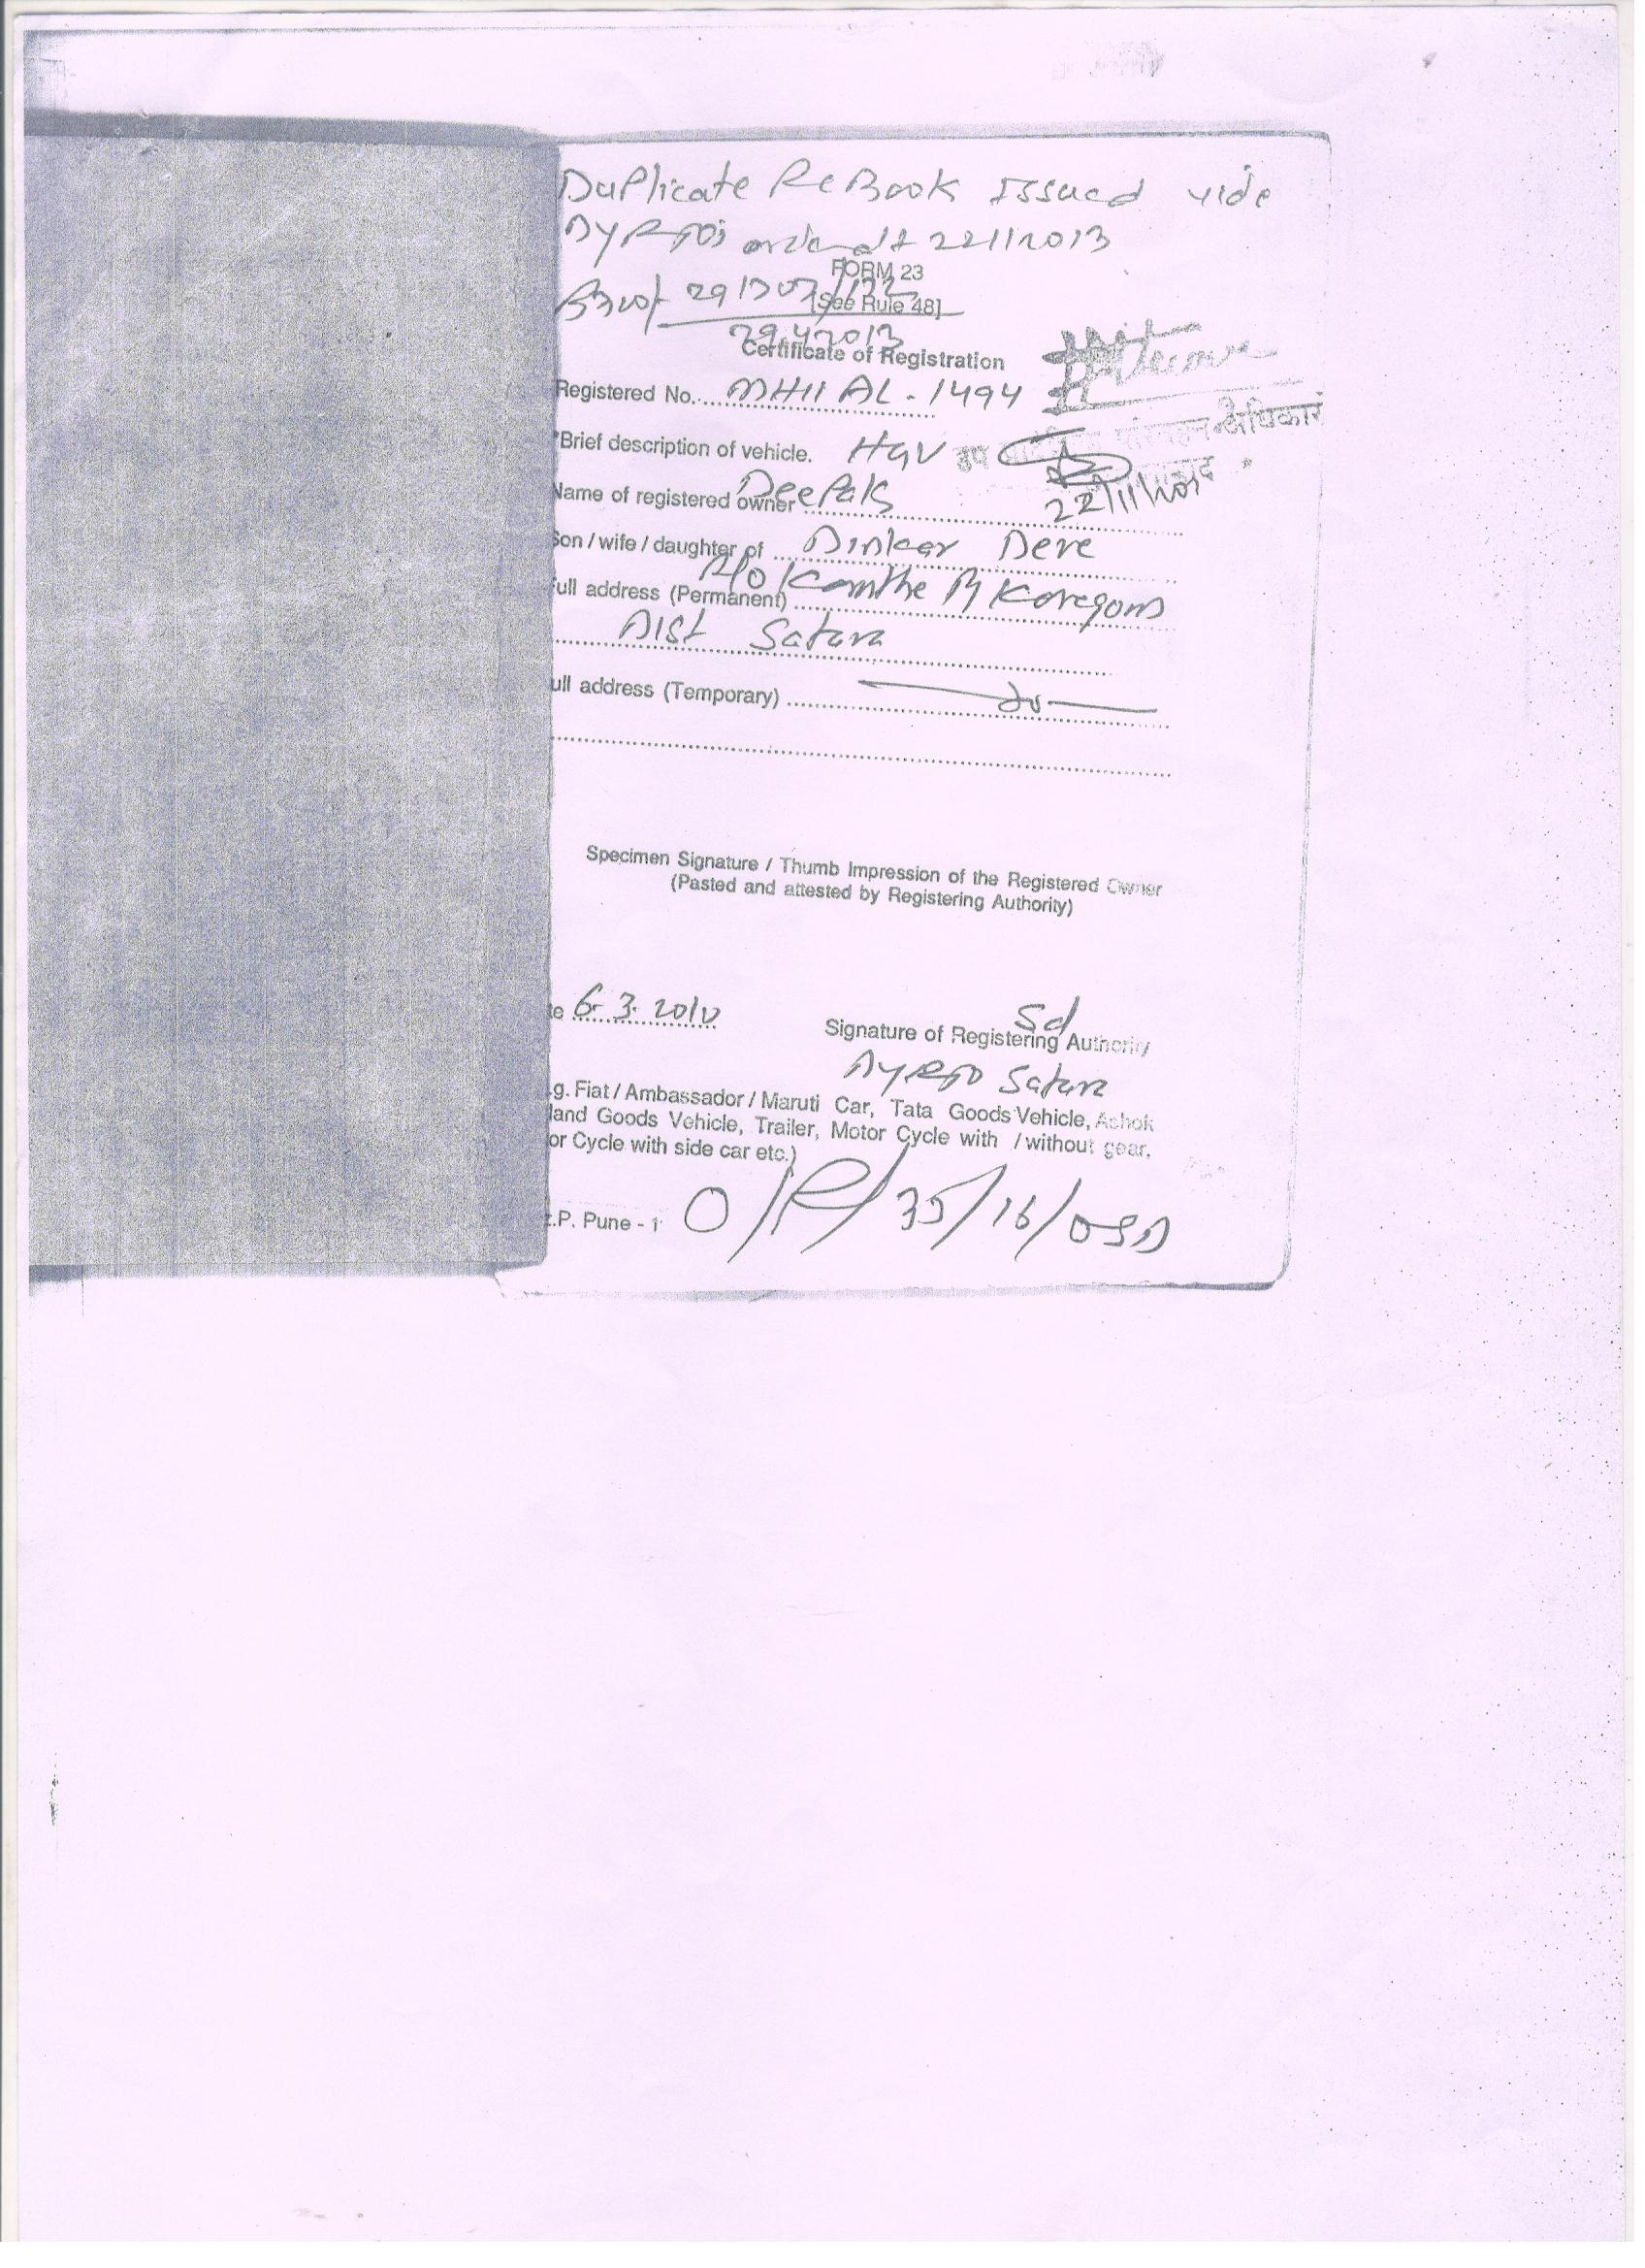 Duplicate Rc Book Issued vide
Dy RTO's order dt 22/1/2013
FORM 23
[See Rule 48]
Certificate of Registration
Registered No. MH11 AL-1494
*Brief description of vehicle. HGV उप परिवहन अधिकारी
Name of registered owner Deepak
22/11/201
Son / wife / daughter of Dinkar Dere
ull address (Permanent) R/o Kamthe Koregaon
Dist Satara
ull address (Temporary)
Specimen Signature / Thumb Impression of the Registered Owner
(Pasted and attested by Registering Authority)
te 6.3.2010
Sd
Signature of Registering Authority
Dy RTO Satara
.g. Fiat / Ambassador / Maruti Car, Tata Goods Vehicle, Ashok
land Goods Vehicle, Trailer, Motor Cycle with / without gear,
or Cycle with side car etc.)
.P. Pune - 1 O/R/35/16/OSD